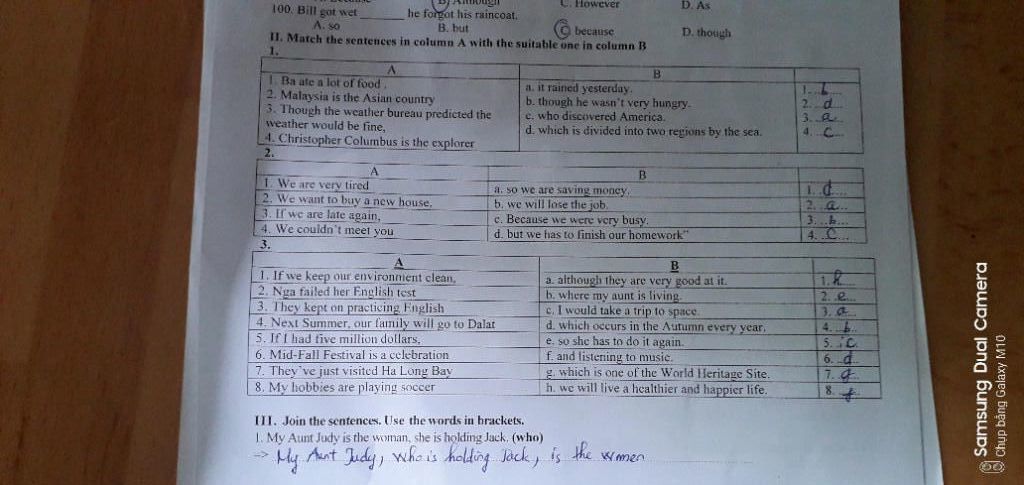 C. However D. As
100. Bill got wet ________ he forgot his raincoat.
A. so B. but C because D. though
II. Match the sentences in column A with the suitable one in column B
1.
A B
1. Ba ate a lot of food . a. it rained yesterday. 1...b...
2. Malaysia is the Asian country b. though he wasn't very hungry. 2...d...
3. Though the weather bureau predicted the c. who discovered America. 3...a...
weather would be fine, d. which is divided into two regions by the sea. 4...c...
4. Christopher Columbus is the explorer
2.
A B
1. We are very tired a. so we are saving money. 1...d...
2. We want to buy a new house, b. we will lose the job. 2...a...
3. If we are late again, c. Because we were very busy. 3...b...
4. We couldn't meet you d. but we has to finish our homework" 4...C...
3.
A B
1. If we keep our environment clean, a. although they are very good at it. 1. h
2. Nga failed her English test b. where my aunt is living. 2. e...
3. They kept on practicing English c. I would take a trip to space. 3. a...
4. Next Summer, our family will go to Dalat d. which occurs in the Autumn every year. 4...b...
5. If I had five million dollars, e. so she has to do it again. 5...C...
6. Mid-Fall Festival is a celebration f. and listening to music. 6...d...
7. They've just visited Ha Long Bay g. which is one of the World Heritage Site. 7. g...
8. My hobbies are playing soccer h. we will live a healthier and happier life. 8. f...
III. Join the sentences. Use the words in brackets.
1. My Aunt Judy is the woman, she is holding Jack. (who)
-> My Aunt Judy, who is holding Jack, is the women
Samsung Dual Camera
Chụp bằng Galaxy M10